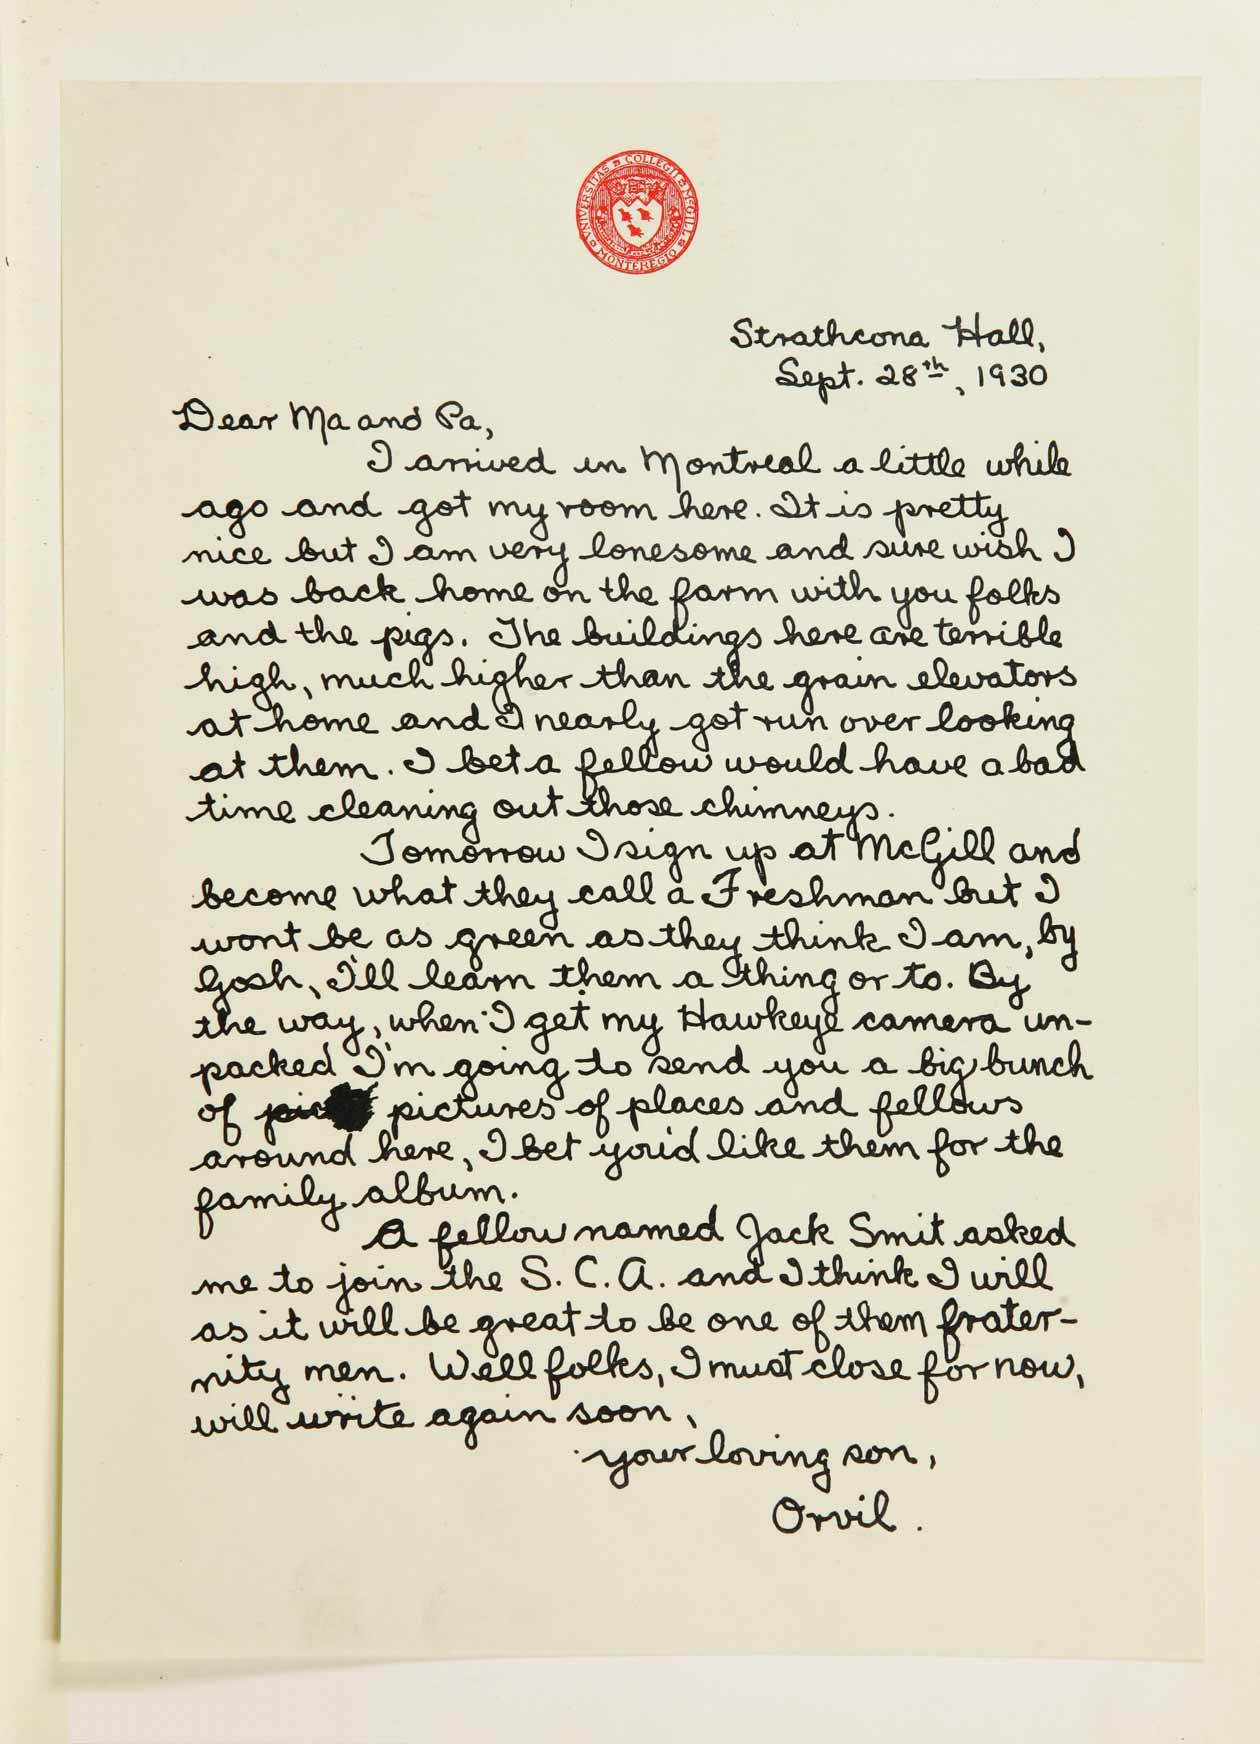 UNIVERSITAS COLLEGII McGILL
MONTEREGIO
Strathcona Hall,
Sept. 28th, 1930
Dear Ma and Pa,
I arrived in Montreal a little while
ago and got my room here. It is pretty
nice but I am very lonesome and sure wish I
was back home on the farm with you folks
and the pigs. The buildings here are terrible
high, much higher than the grain elevators
at home and I nearly got run over looking
at them. I bet a fellow would have a bad
time cleaning out those chimneys.
Tomorrow I sign up at McGill and
become what they call a Freshman but I
wont be as green as they think I am, by
Gosh, I'll learn them a thing or to. By
the way, when I get my Hawkeye camera un-
packed I'm going to send you a big bunch
of pictures of places and fellows
around here, I bet you'd like them for the
family album.
A fellow named Jack Smit asked
me to join the S. C. A. and I think I will
as it will be great to be one of them frater-
nity men. Well folks, I must close for now,
will write again soon,
your loving son,
Orvil.